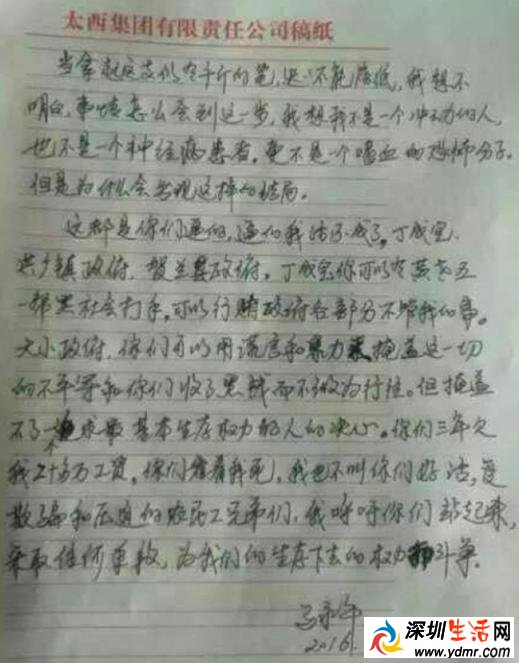 太西集团有限责任公司稿纸
当拿起这支似千斤的笔,迟不能落低,我想不
明白,事情怎么会到这一步,我想我不是一个冲动的人,
也不是一个神经病患者,更不是个嗜血的恐怖分子。
但是为什么会出现这样的结局。
这都是你们逼的,逼的我活不成了,丁成宝、
洪广镇政府、贺兰县政府,丁成宝你可以令黄志五
一帮黑社会打手,可以行贿政府各部分不管我的事。
大小政府,你们可以用谎言和暴力来掩盖这一切
的不平等和你们收了黑钱而不做为行性。但掩盖
不了追求最基本生存权力的人的决心。你们三年欠
我二十多万工资,你们看着我死,我也不叫你们好活,
和压迫的农民工兄弟们,我呼吁你们站起来,
采取任何手段,为我们的生存下去的权力斗争。
马永平
2016.
深圳生活网
www.ydmr.com